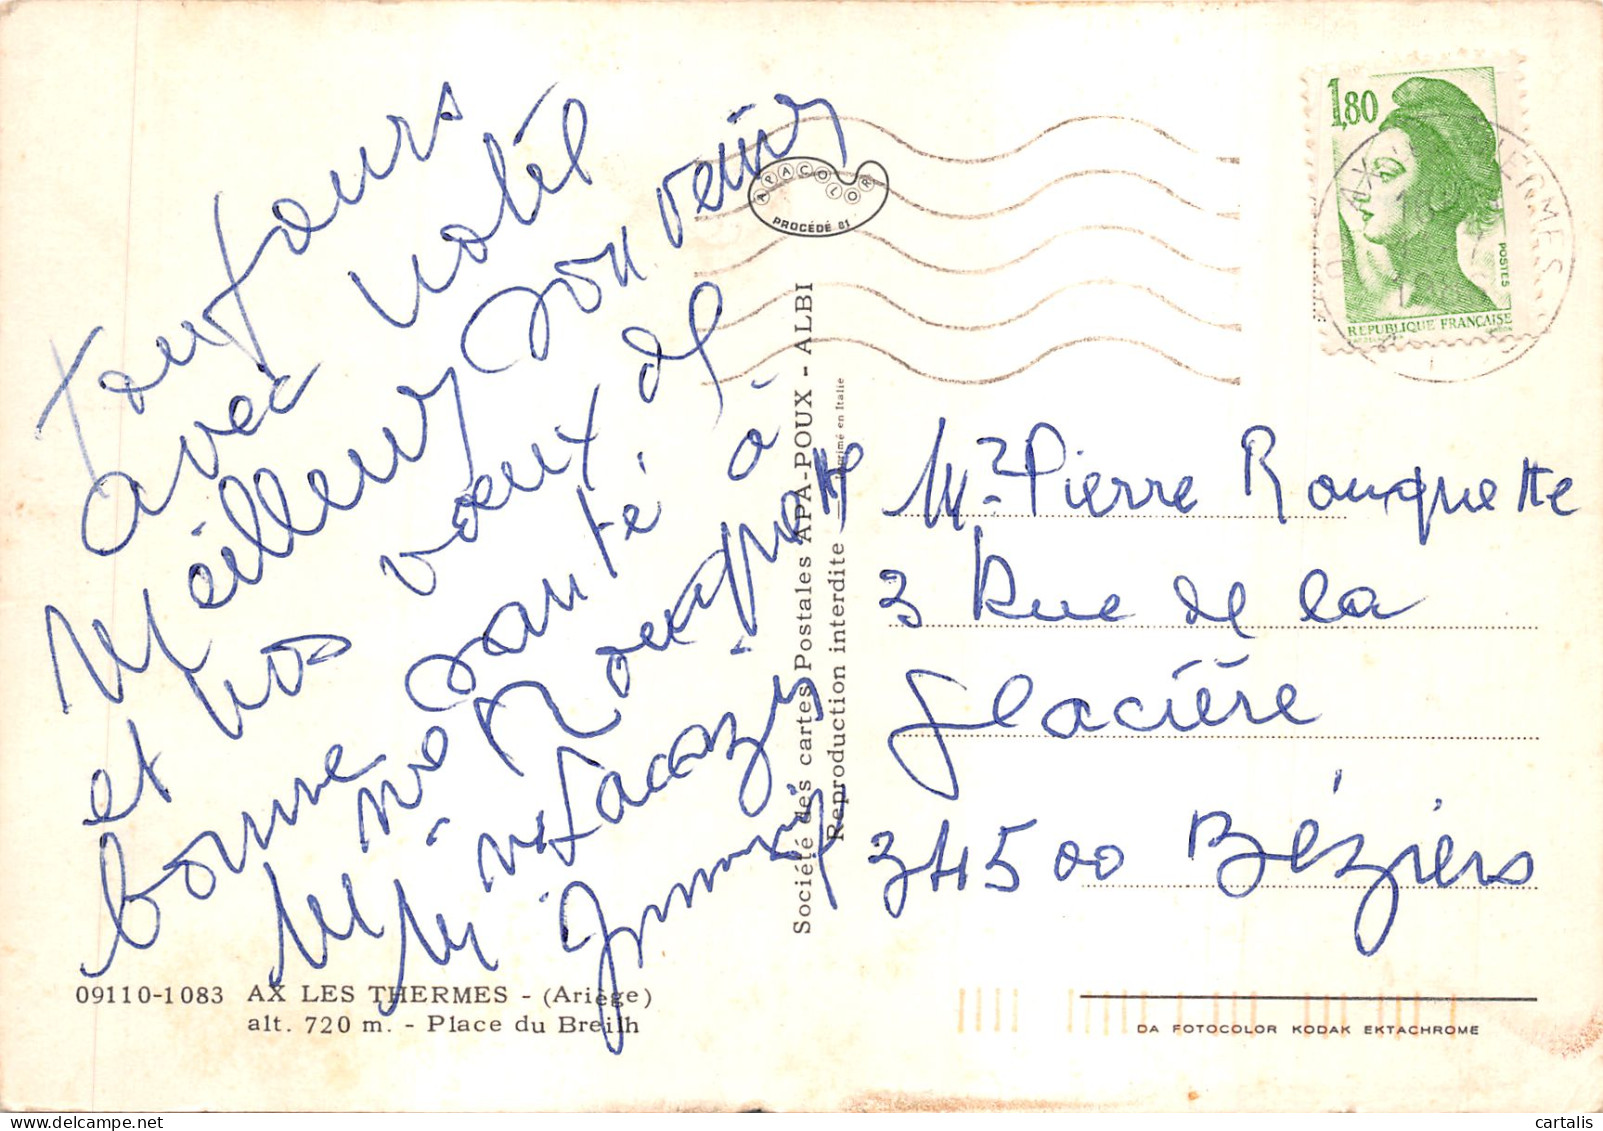 toujours
avec notre
meilleur souvenir
et nos voeux de
bonne santé à
Mme Rouquette
09110-1083 AX LES THERMES - (Ariège)
alt. 720 m. - Place du Breilh
APACOLOR
PROCÉDÉ 81
Société des cartes Postales APA-POUX - ALBI
Reproduction interdite
Imprimé en Italie
1,80
POSTES
REPUBLIQUE FRANÇAISE
AX THERMES
Mr Pierre Rouquette
3 Rue de la
Glacière
34500 Béziers
DA FOTOCOLOR KODAK EKTACHROME
© cartalis
delcampe.net